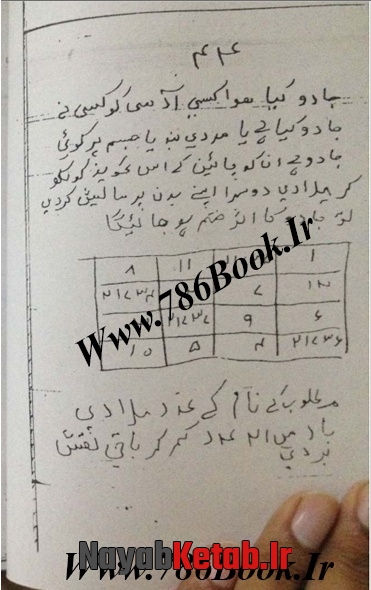 ۴۴
جادو کیا ہوا کسی آدمی کو کسی نے
جادو کیا ہے یا مردی نہ یا جسم پر کوئی
جادو ہے ان کو چائین کے اس تعویذ کو
کر پلا دی دوسرا اپنے بدن پر مالیش کردی
تو جادو کا اثر ختم ہو جائیگا
۸ ۱۱ ۱
۲۱۷۳۴ ۷ ۱۲
۲۱۷۳۷ ۹ ۶
۱۰ ۵ ۴ ۲۱۷۳۶
مطلوب کے نام کے عدد ملا دی
بعد میں عدد کم کر باقی نقش
www.786Book.Ir
NayabKetab.Ir
www.786Book.Ir